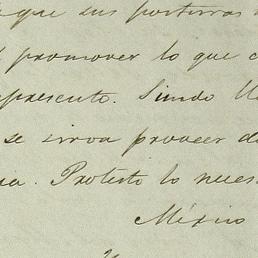 que sus
promover lo que c
presento. Siendo
se sirva proveer d
ia. Protesto lo neces
México